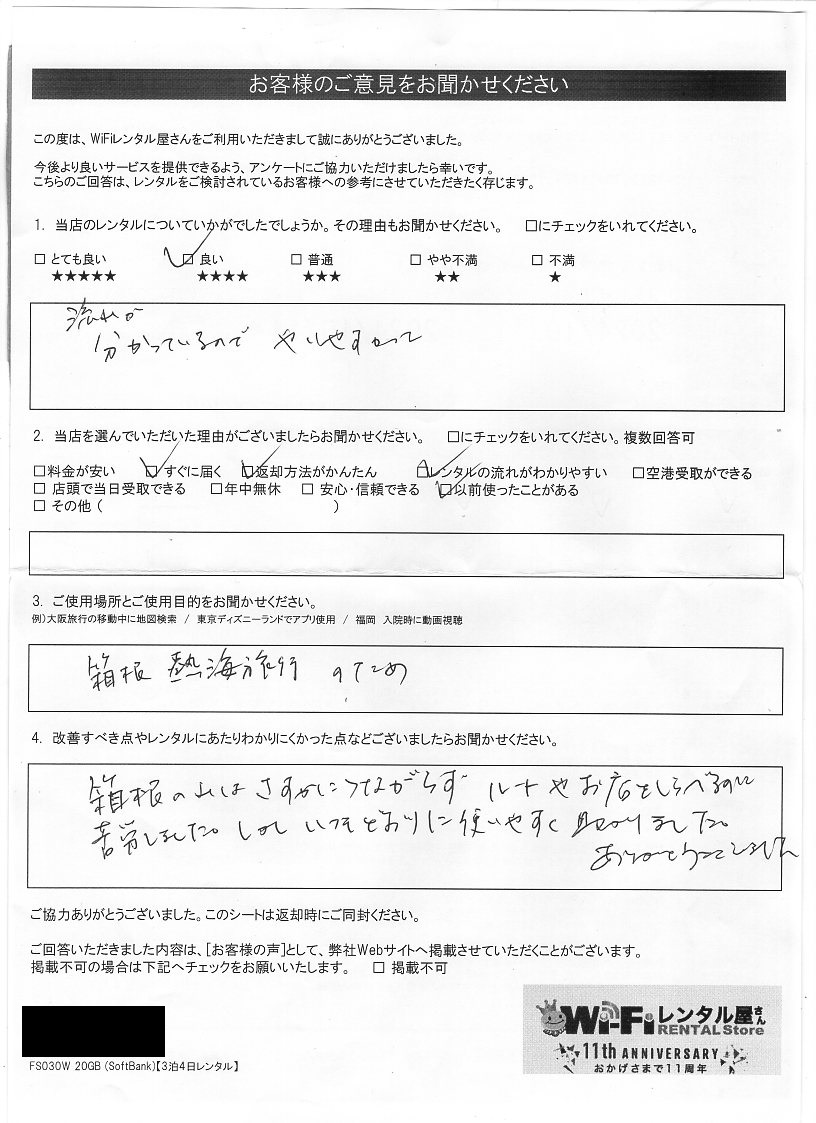 お客様のご意見をお聞かせください
この度は、WiFiレンタル屋さんをご利用いただきまして誠にありがとうございました。
今後より良いサービスを提供できるよう、アンケートにご協力いただけましたら幸いです。
こちらのご回答は、レンタルをご検討されているお客様への参考にさせていただきたく存じます。
1. 当店のレンタルについていかがでしたでしょうか。その理由もお聞かせください。 □にチェックをいれてください。
□ とても良い □ 良い □ 普通 □ やや不満 □ 不満
★★★★★ ★★★★ ★★★ ★★ ★
流れが
分かっているので やりやすかって
2. 当店を選んでいただいた理由がございましたらお聞かせください。 □にチェックをいれてください。複数回答可
□料金が安い □すぐに届く □返却方法がかんたん □レンタルの流れがわかりやすい □空港受取ができる
□ 店頭で当日受取できる □年中無休 □ 安心・信頼できる □以前使ったことがある
□ その他 ( )
3. ご使用場所とご使用目的をお聞かせください。
例)大阪旅行の移動中に地図検索 / 東京ディズニーランドでアプリ使用 / 福岡 入院時に動画視聴
箱根 熱海旅行 のため
4. 改善すべき点やレンタルにあたりわかりにくかった点などございましたらお聞かせください。
箱根の山はさすがにつながらず ルートやお店をしらべるのに
苦労しました。しかし いつもどおりに使いやすく 助かりました。
ありがとうございました
ご協力ありがとうございました。このシートは返却時にご同封ください。
ご回答いただきました内容は、[お客様の声]として、弊社Webサイトへ掲載させていただくことがございます。
掲載不可の場合は下記へチェックをお願いいたします。 □ 掲載不可
Wi-Fiレンタル屋さん
RENTAL Store
11th ANNIVERSARY
おかげさまで11周年
FS030W 20GB (SoftBank)【3泊4日レンタル】